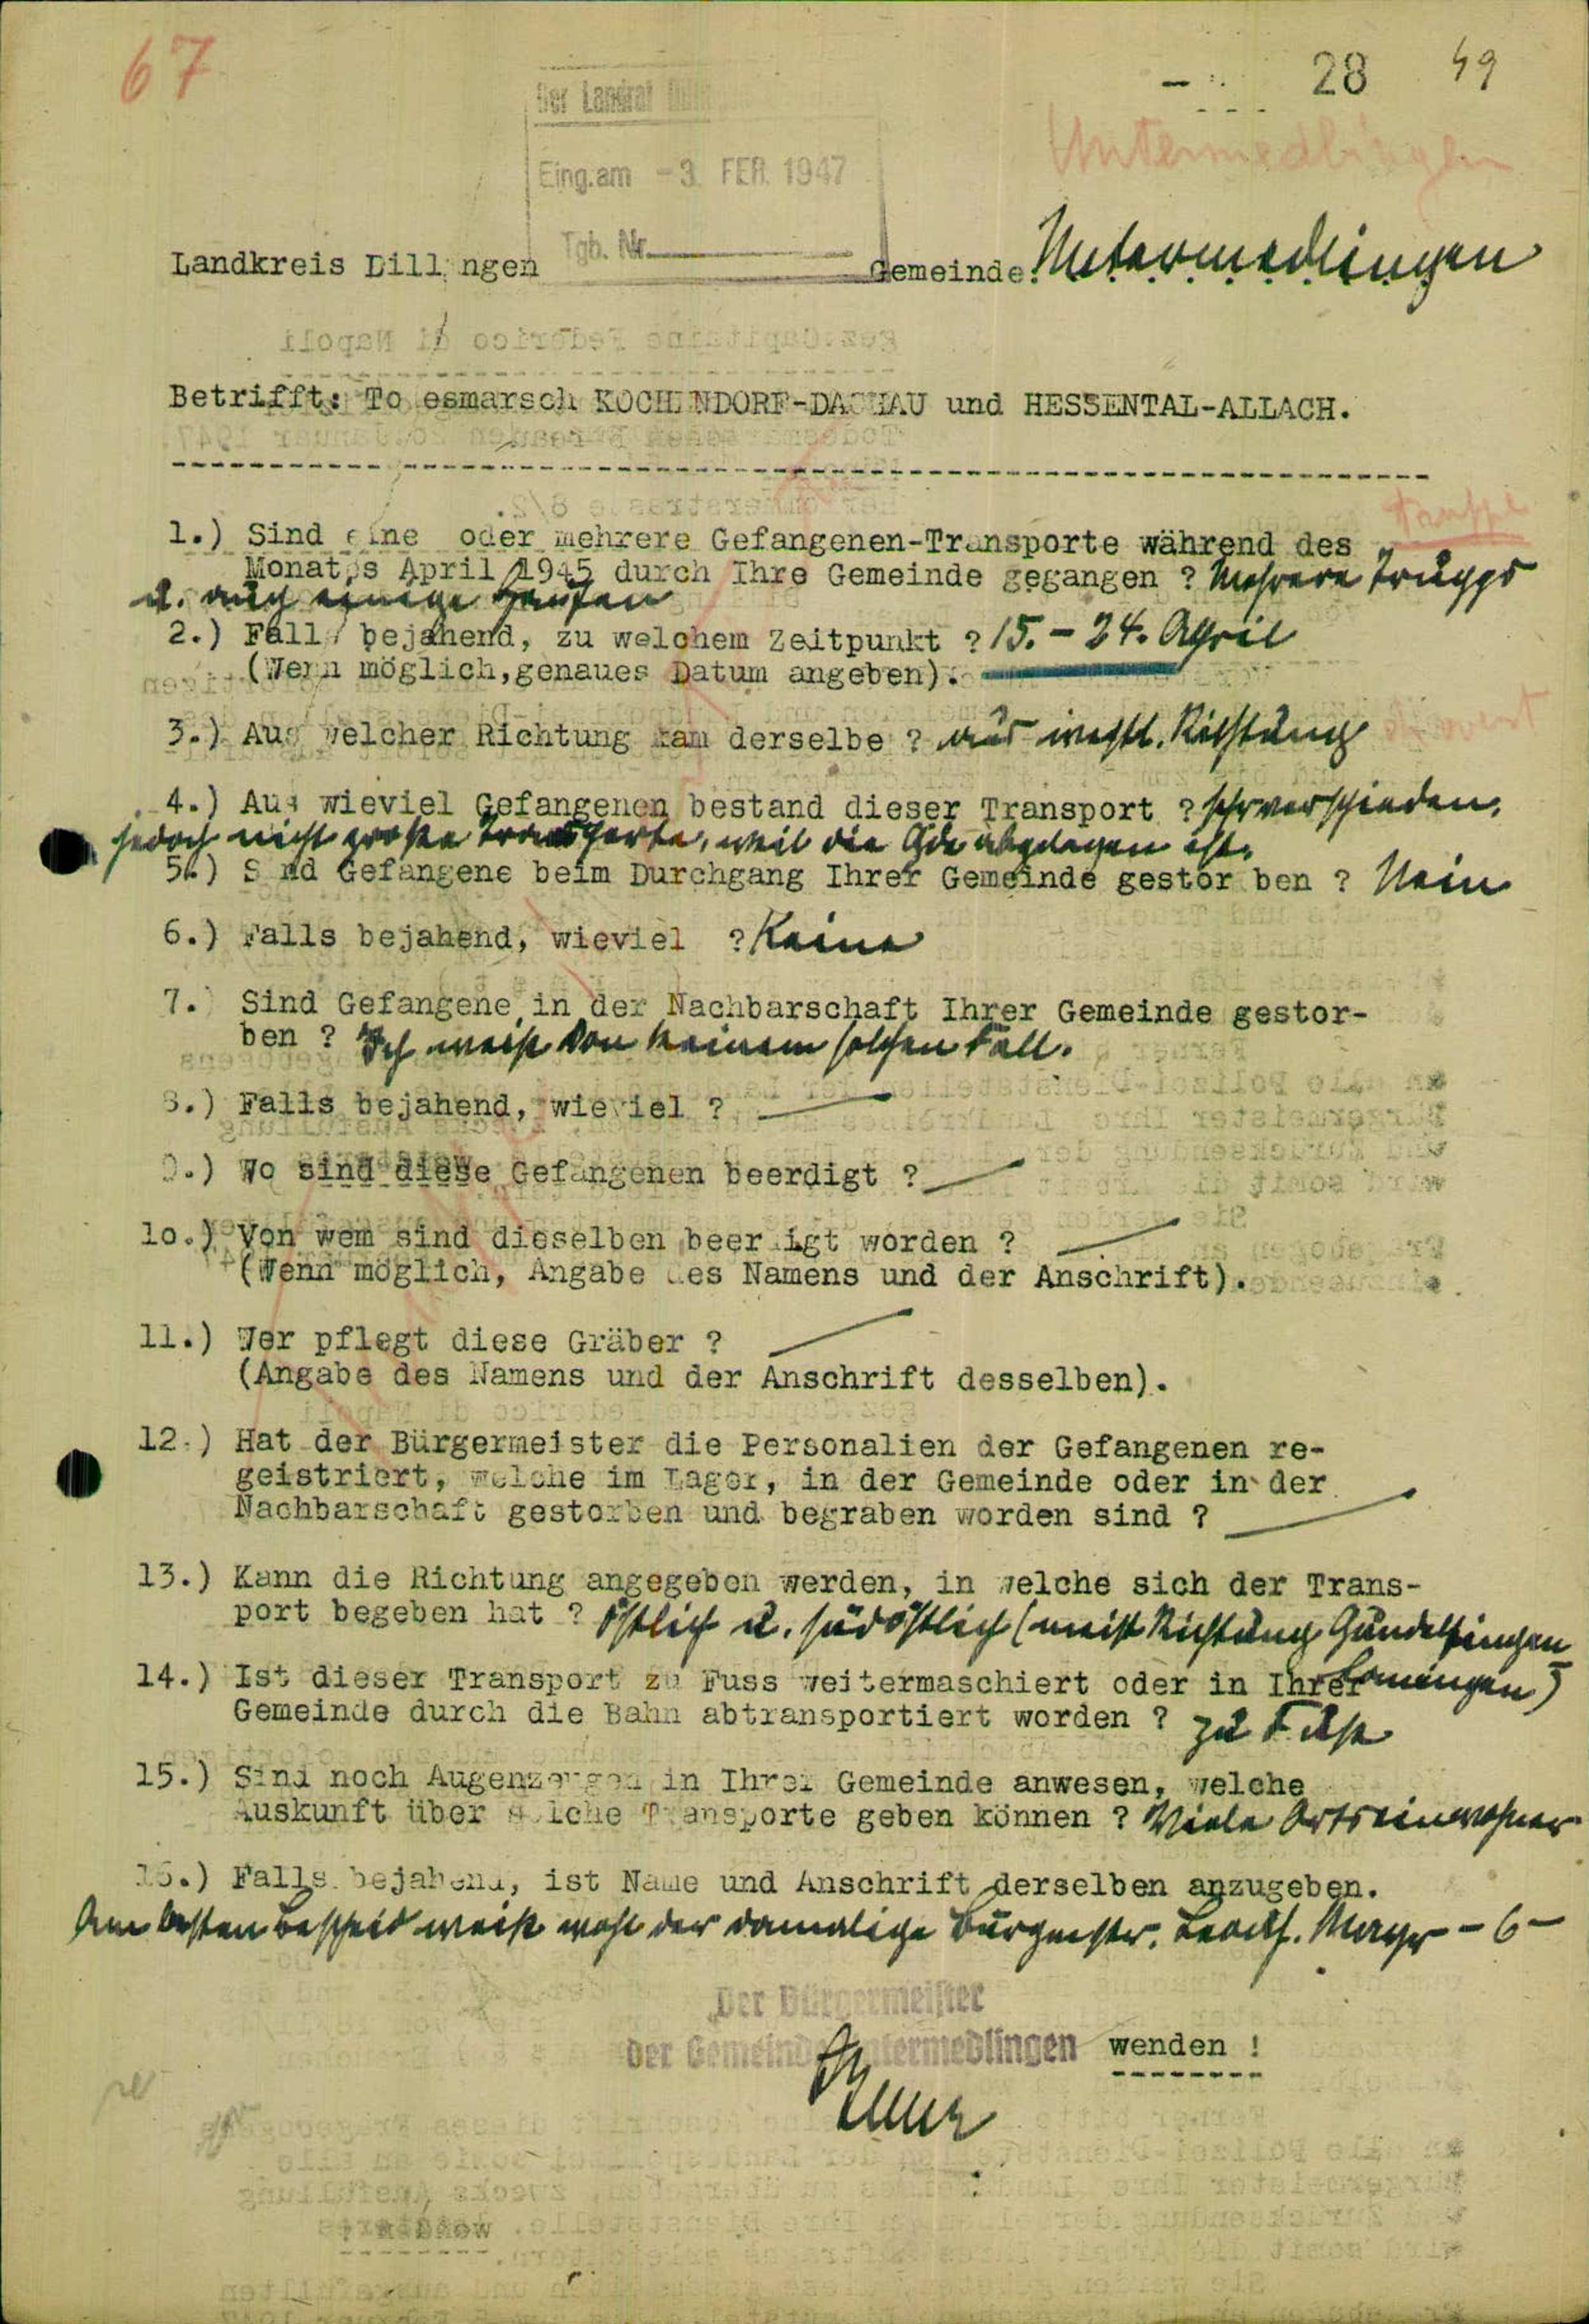 67
28 49
Der Landrat
Untermedlingen
Eing.am - 3. FEB. 1947
Tgb. Nr.
Landkreis Dillingen Gemeinde Untermedlingen
Betrifft: Todesmarsch KOCHENDORF-DACHAU und HESSENTAL-ALLACH.
1.) Sind eine oder mehrere Gefangenen-Transporte während des
Monates April 1945 durch Ihre Gemeinde gegangen ? Mehrere Trupps
u. auch einige Haufen
2.) Falls bejahend, zu welchem Zeitpunkt ? 15. - 24. April
(Wenn möglich,genaues Datum angeben).
3.) Aus welcher Richtung kam derselbe ? aus westl. Richtung
4.) Aus wieviel Gefangenen bestand dieser Transport ? sehr verschieden,
jedoch nicht große Transporte, weil die Gde abgelegen ist.
5.) Sind Gefangene beim Durchgang Ihrer Gemeinde gestor ben ? Nein
6.) Falls bejahend, wieviel ? Keine
7. Sind Gefangene in der Nachbarschaft Ihrer Gemeinde gestor-
ben ? Ich weiß von keinem solchen Fall.
8.) Falls bejahend, wieviel ? —
9.) Wo sind diese Gefangenen beerdigt ? —
10.) Von wem sind dieselben beerdigt worden ? —
(Wenn möglich, Angabe des Namens und der Anschrift).
11.) Wer pflegt diese Gräber ? —
(Angabe des Namens und der Anschrift desselben).
12.) Hat der Bürgermeister die Personalien der Gefangenen re-
geistriert, welche im Lager, in der Gemeinde oder in der
Nachbarschaft gestorben und begraben worden sind ? —
13.) Kann die Richtung angegeben werden, in welche sich der Trans-
port begeben hat ? östlich u. südöstlich (meist Richtung Gundelfingen
14.) Ist dieser Transport zu Fuss weitermaschiert oder in Ihrer
Gemeinde durch die Bahn abtransportiert worden ? zu Fuß
15.) Sind noch Augenzeugen in Ihrer Gemeinde anwesen, welche
Auskunft über solche Transporte geben können ? Viele Ortseinwohner
16.) Falls bejahend, ist Name und Anschrift derselben anzugeben.
Am besten Bescheid weiß wohl der damalige Bürgmstr. Mayr - 6 -
Der Bürgermeister
der Gemeinde Untermedlingen wenden !